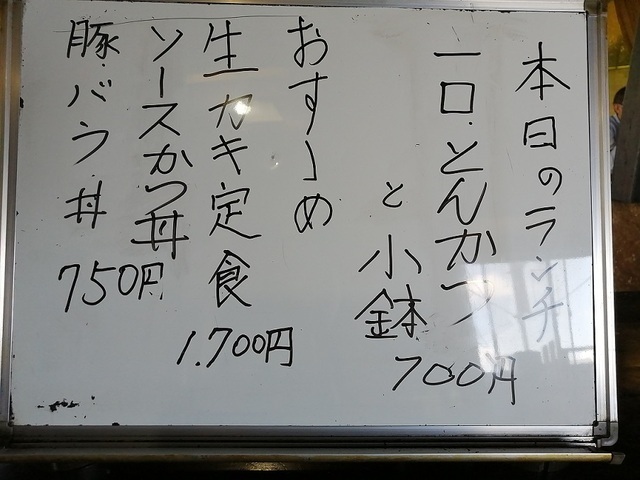 本日のランチ
一口とんかつ
と小鉢
700円
おすゝめ
生カキ定食
1.700円
ソースかつ丼
豚バラ丼
750円